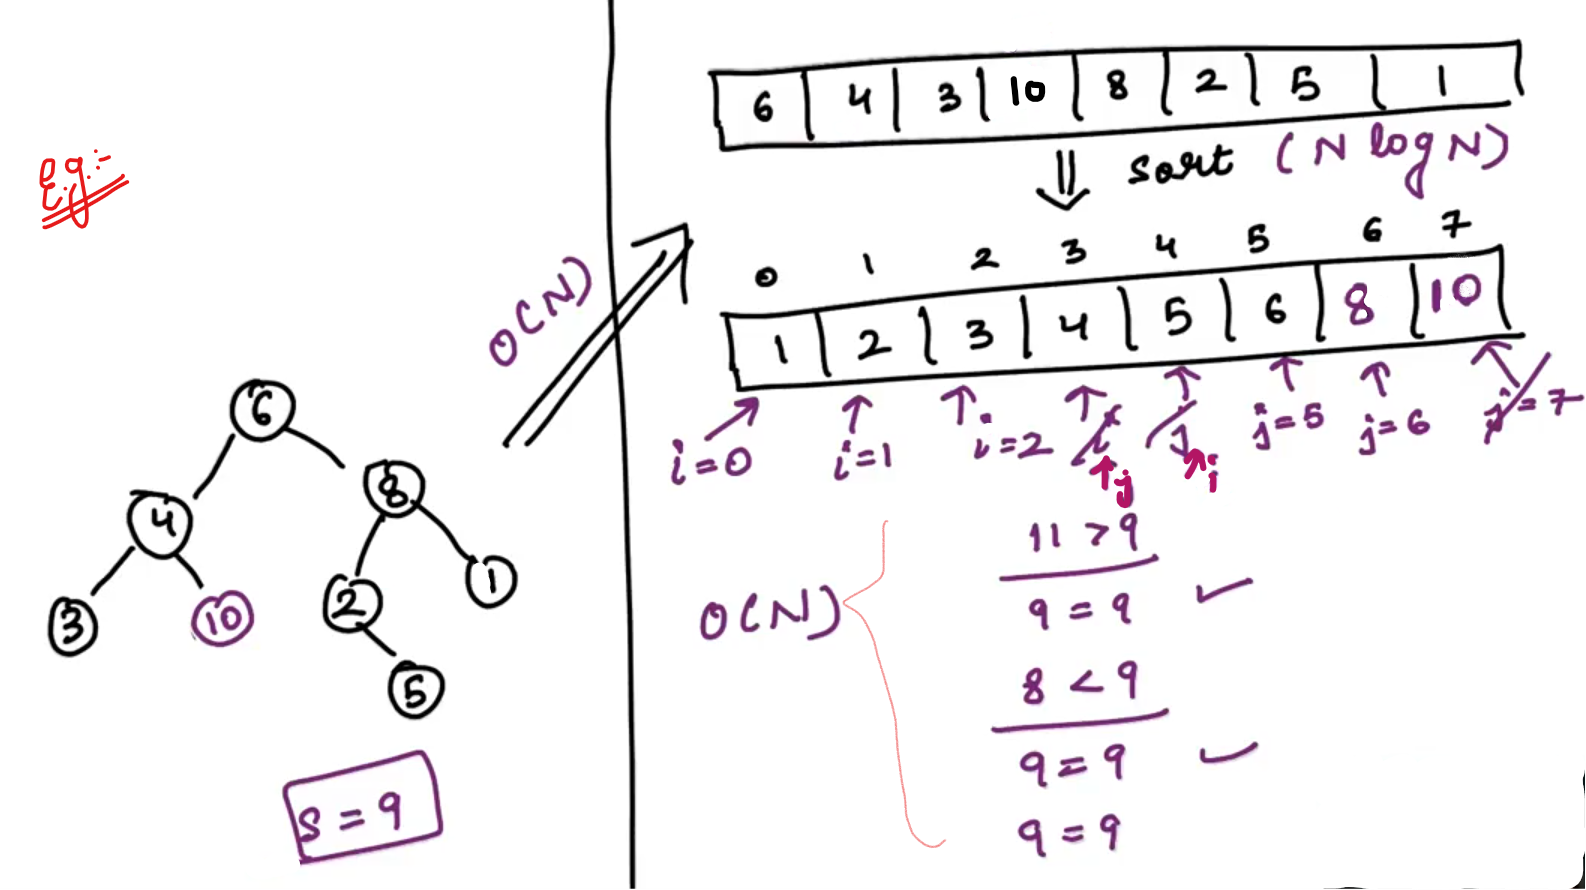 eg:-
6
4 8
3 10 2 1
5
S = 9
O(N)
6 4 3 10 8 2 5 1
sort (N log N)
0 1 2 3 4 5 6 7
1 2 3 4 5 6 8 10
i=0 i=1 i=2 i j j=5 j=6 j=7
j i
11 > 9
9 = 9
8 < 9
9 = 9
9 = 9
O(N)